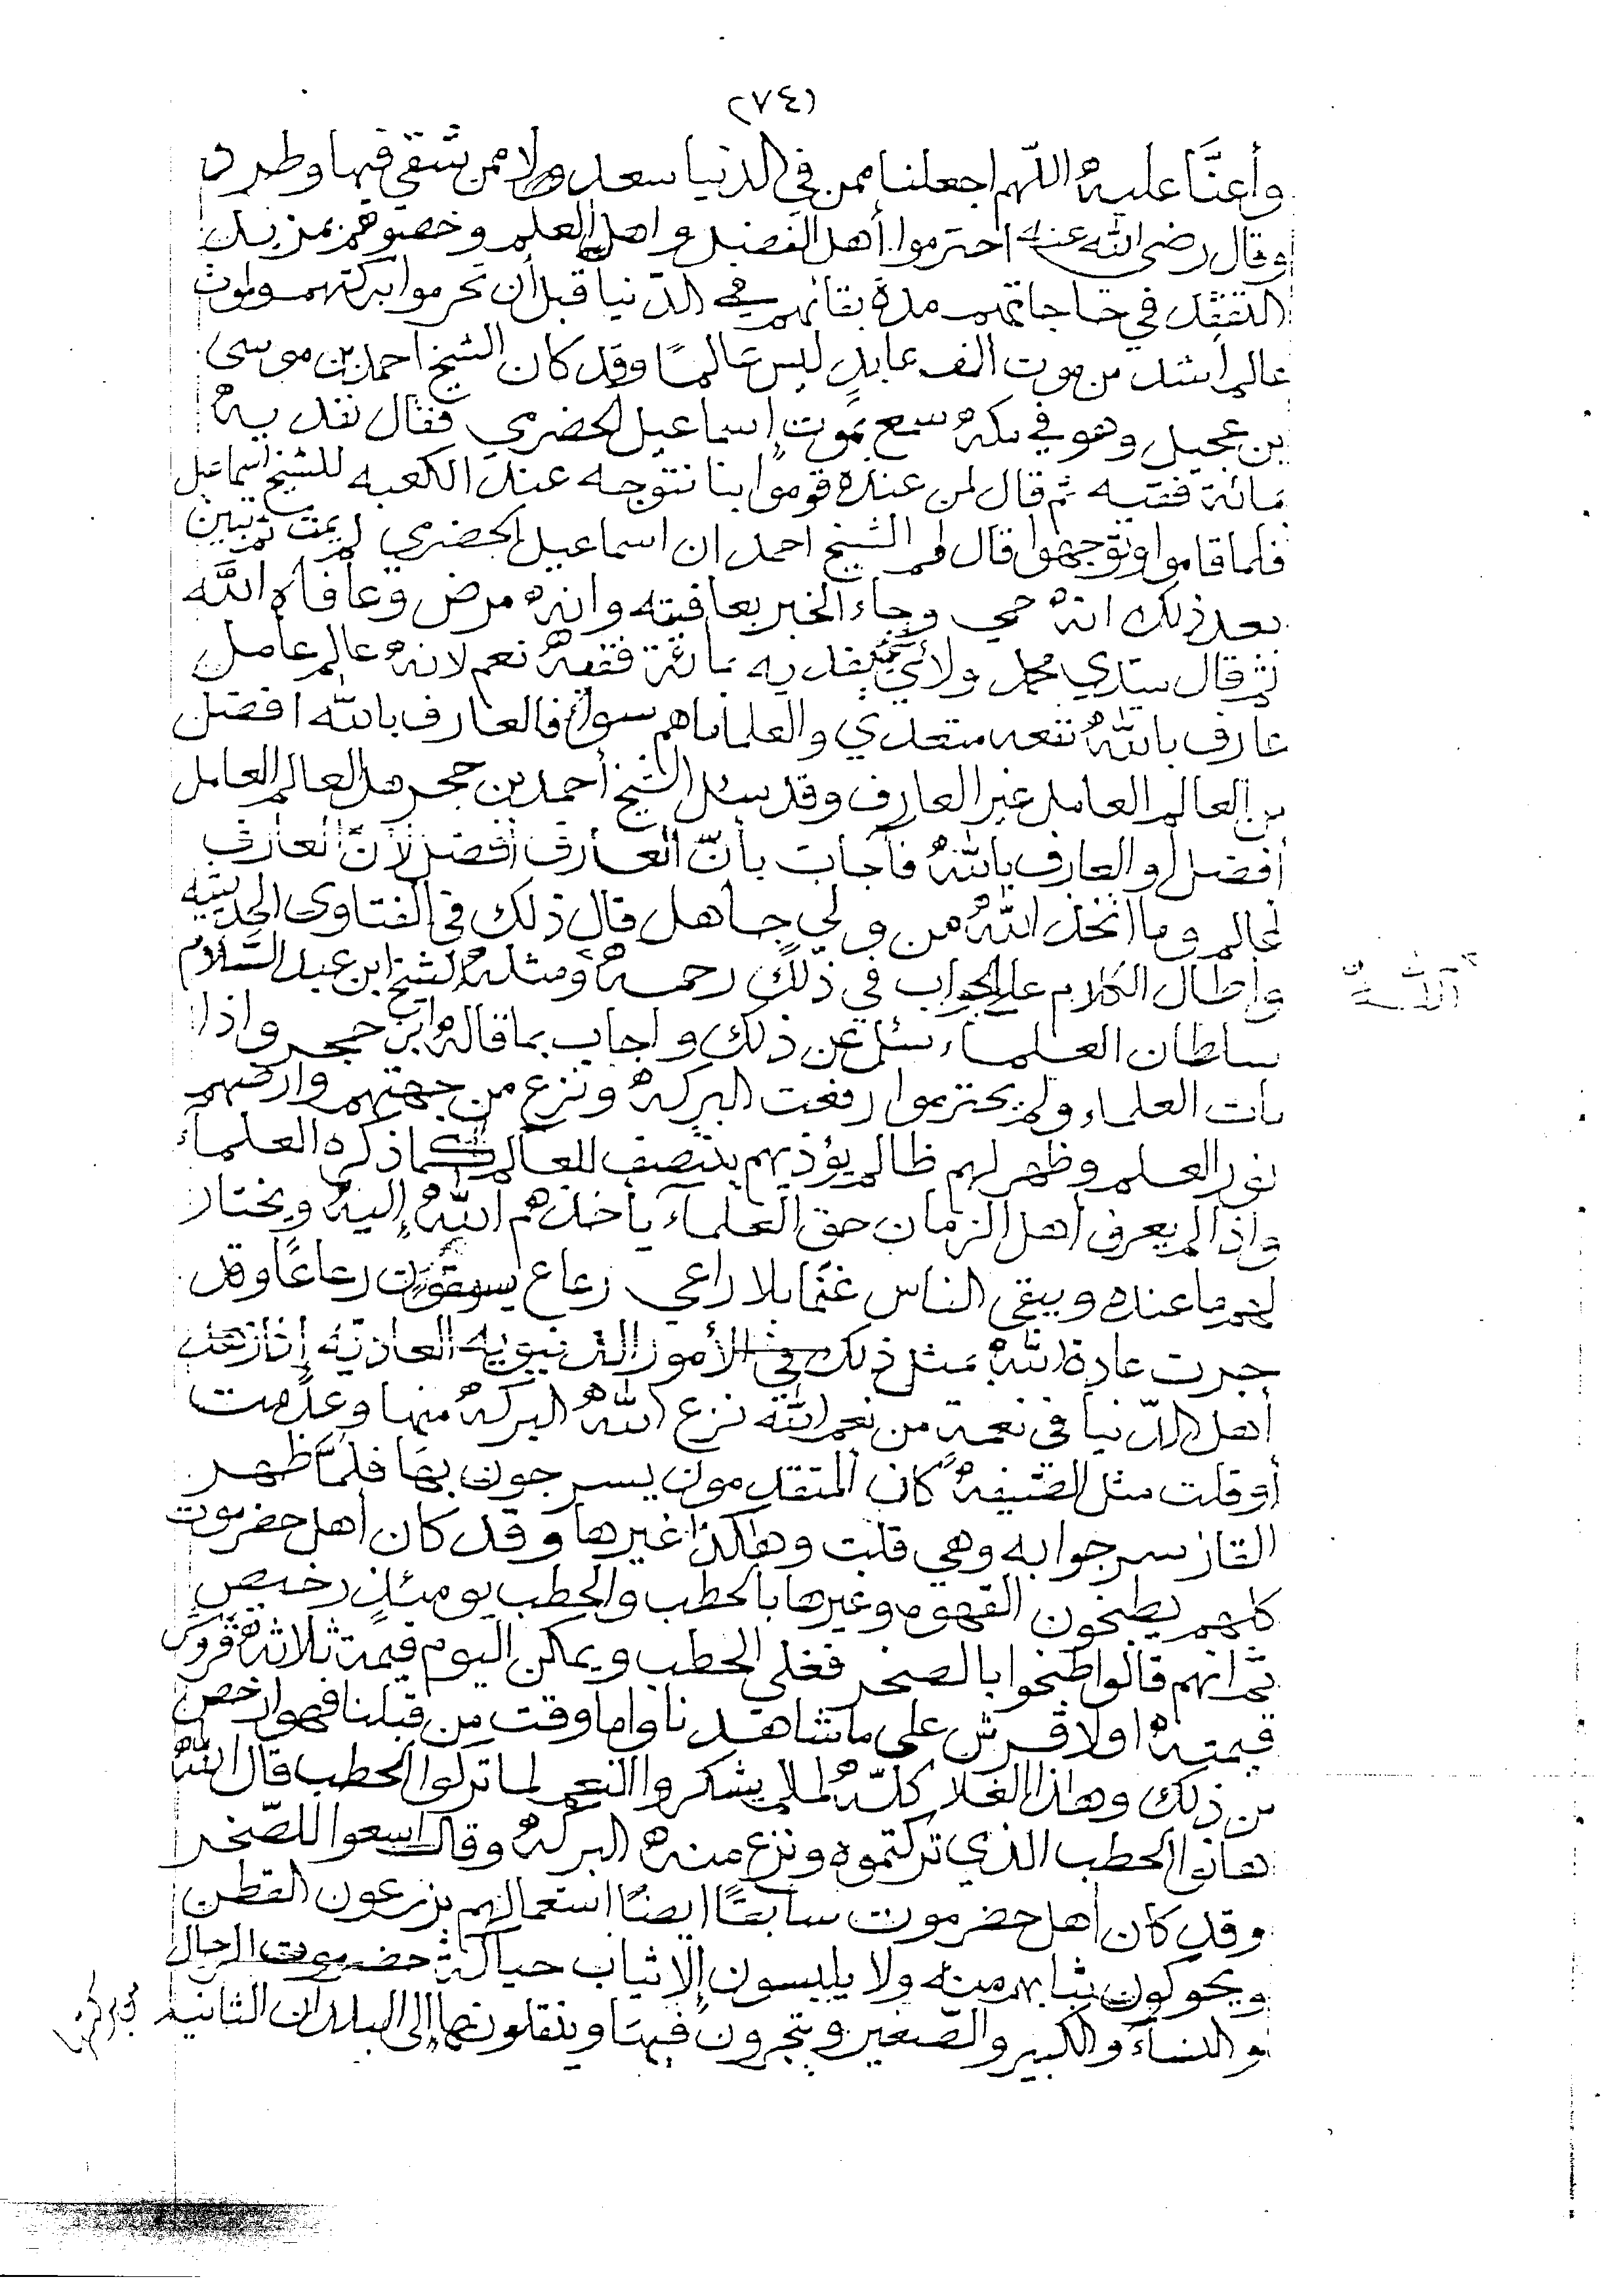 (٧٤)
وأعنَّا عليه اللّهم اجعلنا ممن في الدنيا سعد ولا ممن شقي فيها وطرد
وقال رضي الله عنه احترموا أهل الفضل واهل العلم وخصوهم بمزيد
التفقد في حاجاتهم مدة بقائهم في الدنيا قبل أن تحرموا بركتهم ولموت
عالم أشد من موت الف عابدٍ ليس عَالمًا وقد كان الشيخ احمد بن موسى
بن عجيل وهو في مكة سمع بموت إسماعيل الحضرمي فقال نفديه
بمائة فقيه ثم قال لمن عنده قوموا بنا نتوجه عند الكعبه للشيخ اسماعيل
فلما قاموا وتوجهوا قال لهم الشيخ احمد ان اسماعيل الحضرمي لم يمت ثم تبين
بعد ذلك انه حي وجاء الخبر بعافيته وانه مرض وعافاه الله
ثم قال سيدي محمد ولأي شيء يفديه بمائة فقيه نعم لانه عالم عامل
عارف بالله نفعه متعدي والعلما ما هم سواء فالعارف بالله افضل
من العالم العامل غير العارف وقد سئل الشيخ أحمد بن حجر هل العالم العامل
أفضل أو العارف بالله فأجاب بأنّ العارف أفضل لأنّ العارف
عالم وما اتخذ الله من ولي جاهل قال ذلك في الفتاوى الحديثيه
وأطال الكلام على الجواب في ذلك رحمه ومثله الشيخ ابن عبد السَّلام
سلطان العلماء سئل عن ذلك واجاب بما قاله ابن حجر واذا
مات العلماء ولم يحترموا رفعت البركه ونزع من جهتهم وارضهم
نور العلم وظهر لهم ظالم يؤذيهم ينتصف للعالم كما ذكره العلماء
واذا لم يعرف اهل الزمان حق العلماء يأخذهم الله إليه ويختار
لهم ما عنده ويبقى الناس غنمًا بلا راعي رعاع يسوقون رعاعًا وقد
جرت عادة الله مثل ذلك في الأمور الدنيويه العاديّه إذا زهد
أهل الدّنيا في نعمة من نعم الله نزع الله البركه منها وعدمت
أو قلت مثل الصيفه كان المتقدمون يسرجون بها فلمَّا ظهر
القاز سرجوا به وهي قلت وهاكذا غيرها وقد كان أهل حضرموت
كلهم يطبخون القهوه وغيرها بالحطب والحطب يومئذٍ رخيص
ثم انهم قالوا طبخوا بالصخر فغلي الحطب ويمكن اليوم قيمة ثلاثة قروش
قيمته اولا قرش على ما شاهدنا واما وقت من قبلنا فهو ارخص
من ذلك وهاذا الغلا كلّه لما لم يشكروا النعم لما تركوا الحطب قال الله
هاتوا الحطب الذي تركتموه ونزع منه البركه وقال اسعوا للصّخر
وقد كان أهل حضرموت سابقًا ايضًا استعمالهم يزرعون القطن
ويحوكون ثيابهم منه ولا يلبسون إلا ثياب حياكة حضرموت الرجال
والنساء والكبير والصغير ويتجرون فيها وينقلونها إلى البلدان الثانيه